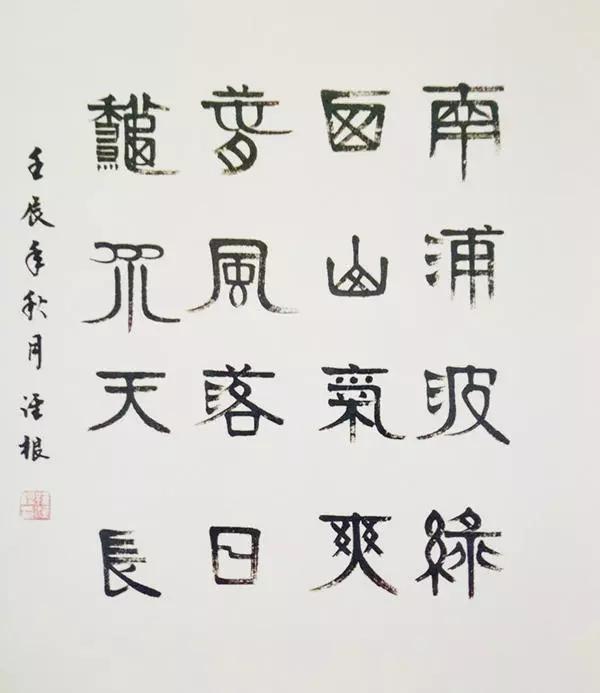 南浦波綠
西山氣爽
春風落日
龝水天長
壬辰年秋月根